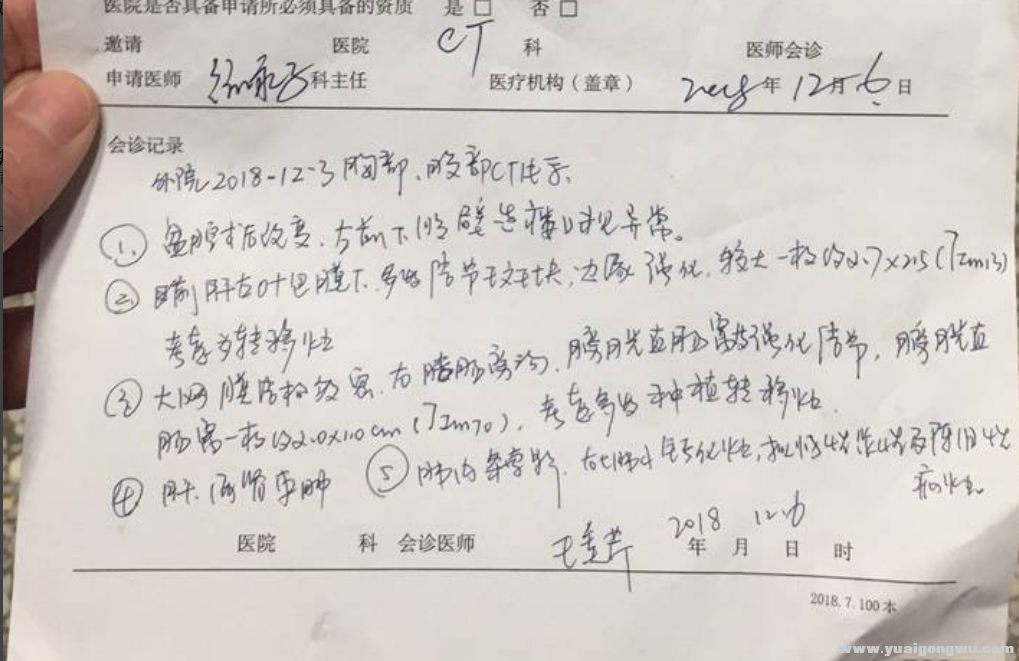 医院是否具备申请所必须具备的资质 是□ 否□
邀请 医院 CT 科 医师会诊
申请医师 科主任 医疗机构(盖章) 2018年12月6日
会诊记录
外院2018-12-3胸部、腹部CT片示:
① 盆腔术后改变,右前下腹壁造瘘口未见异常。
② 肝右叶包膜下多发结节,边缘强化,较大一枚约2.7×2.5(Im13)
考虑为转移灶
③ 大网膜结构致密,右结肠旁沟、膀胱直肠窝强化结节,膀胱直
肠窝一枚约2.0×1.0cm(Im70),考虑多发种植转移灶
④ 肝、肾囊肿 ⑤ 肺内条索影,钙化灶,及陈旧
病灶。
医院 科 会诊医师 2018年12月6日 时
2018.7.100本
www.yuaigongwu.com